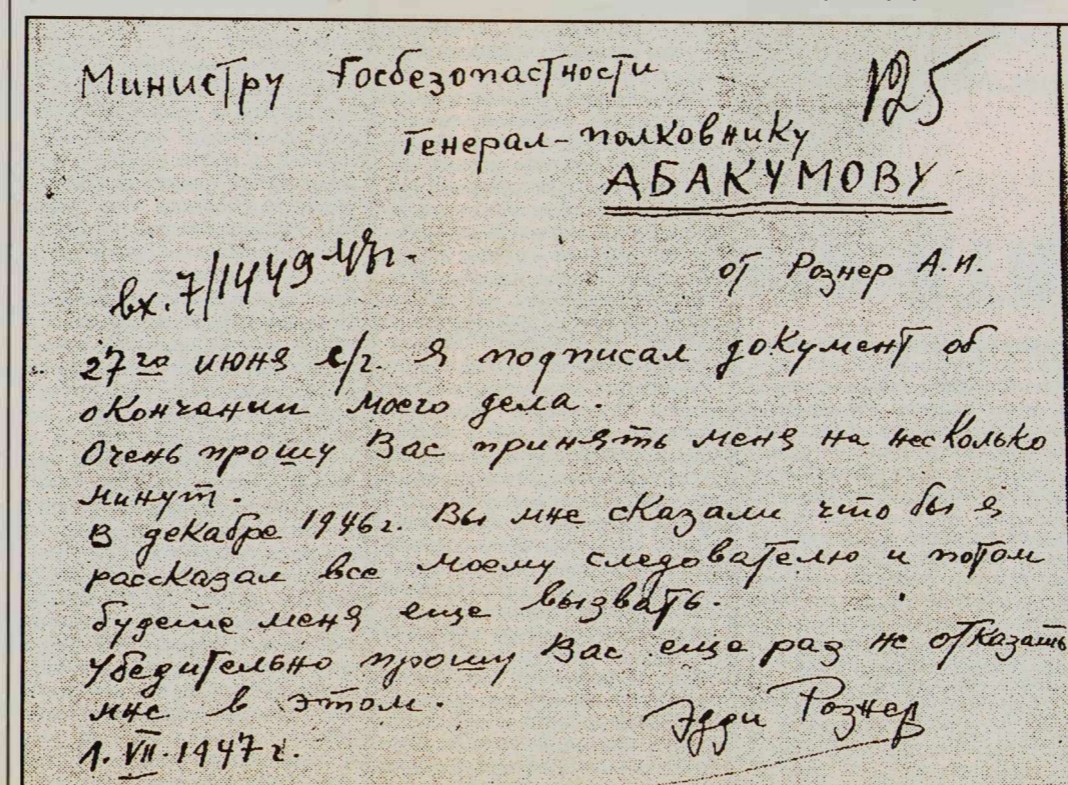 Министру Госбезопастности
125
Генерал-полковнику
АБАКУМОВУ
вх. 7/1449 47г.
от Рознер А.И.
27го июня с/г. Я подписал документ об
окончании моего дела.
Очень прошу Вас принять меня на несколько
минут.
В декабре 1946г. Вы мне сказали что бы я
рассказал все моему следователю и потом
будете меня еще вызвать.
Убедительно прошу Вас еще раз не отказать
мне в этом.
Эдди Рознер
1. VII. 1947 г.